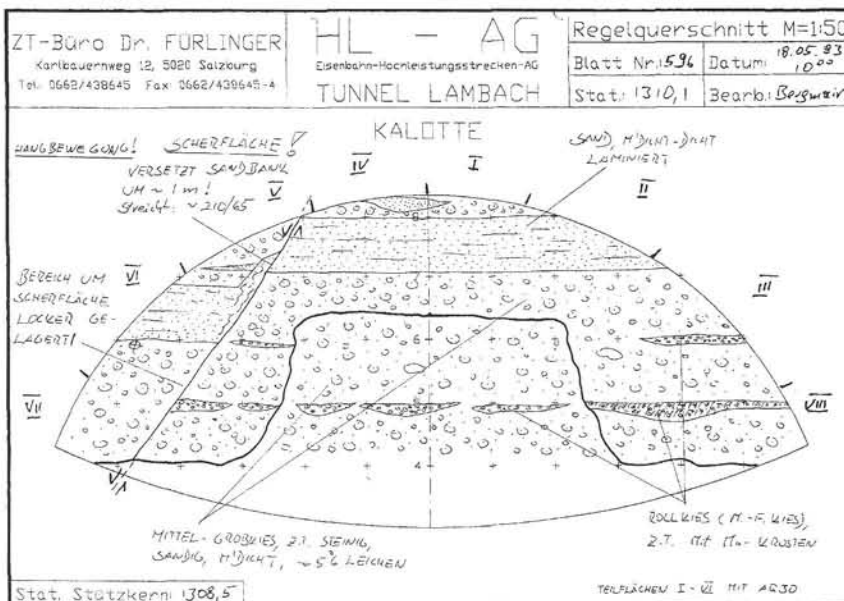 ZT-Büro Dr. FÜRLINGER
Karlbauernweg 12, 5020 Salzburg
Tel: 0662/438645 Fax: 0662/438645-4
HL - AG
Eisenbahn-Hochleistungsstrecken-AG
TUNNEL LAMBACH
Regelquerschnitt M=1:50
Blatt Nr.: 596
Datum: 18.05.93
10⁰⁰
Stat.: 1310,1
Bearb.: Bergmair
KALOTTE
HANGBEWEGUNG!
SCHERFLÄCHE!
VERSETZT SANDBANK
UM ~ 1 m!
Streicht: ~ 210/65
SAND, M'DICHT-DICHT
LAMINIERT
IV
I
V
II
VI
III
VII
VIII
BEREICH UM
SCHERFLÄCHE
LOCKER GE-
LAGERT!
V/1
8
7
6
4
V/1
MITTEL-GROBKIES, Z.T. STEINIG,
SANDIG, M'DICHT, ~5% LEICHEN
ROLLKIES (M.-F. KIES),
Z.T. MIT Mn-KRUSTEN
Stat. Stützkern: 1308,5
TEILFLÄCHEN I - VI MIT AG30